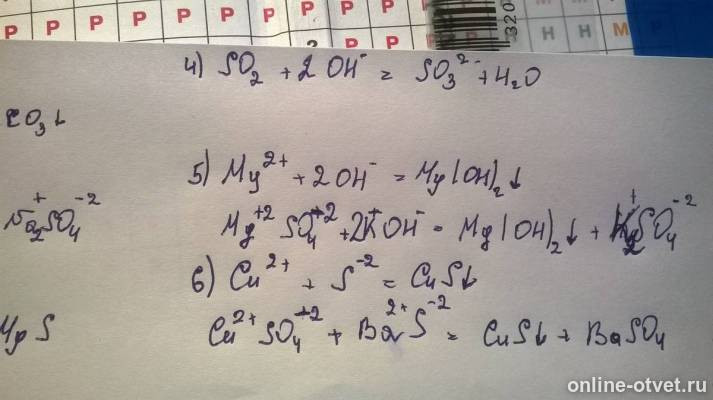 P P P P P P P P
P P P P P P P H H M
4) SO₂ + 2 OH⁻ = SO₃²⁻ + H₂O
CO₃↓
5) Mg²⁺ + 2OH⁻ = Mg(OH)₂↓
Na₂⁺SO₄⁻² Mg⁺²SO₄⁺² + 2K⁺OH⁻ = Mg(OH)₂↓ + K₂⁺SO₄⁻²
6) Cu²⁺ + S⁻² = CuS↓
MgS Cu²⁺SO₄⁺² + Ba²⁺S⁻² = CuS↓ + BaSO₄
online-otvet.ru